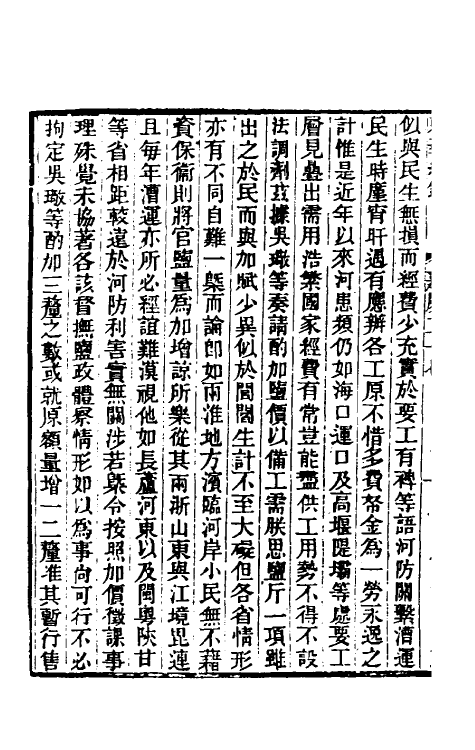 似與民生無損而經費少充實於要工有裨等語河防關繫漕運
民生時塵宵旰遇有應辦各工原不惜多費帑金為一勞永逸之
計惟是近年以來河患頻仍如海口運口及高堰隄壩等處要工
層見疊出需用浩繁國家經費有常豈能盡供工用勢不得不設
法調劑茲據吳璥等奏請酌加鹽價以備工需朕思鹽斤一項雖
出之於民而與加賦少異似於閭閻生計不至大礙但各省情形
亦有不同自難一槩而論卽如兩淮地方濱臨河岸小民無不藉
資保衞則將官鹽量為加增諒所樂從其兩浙山東與江境毘連
且每年漕運亦所必經誼難漠視他如長蘆河東以及閩粵陝甘
等省相距較遠於河防利害實無關涉若槩令按照加價徵課事
理殊覺未協著各該督撫鹽政體察情形如以為事尙可行不必
拘定吳璥等酌加三釐之數或就原額量增一二釐准其暫行售